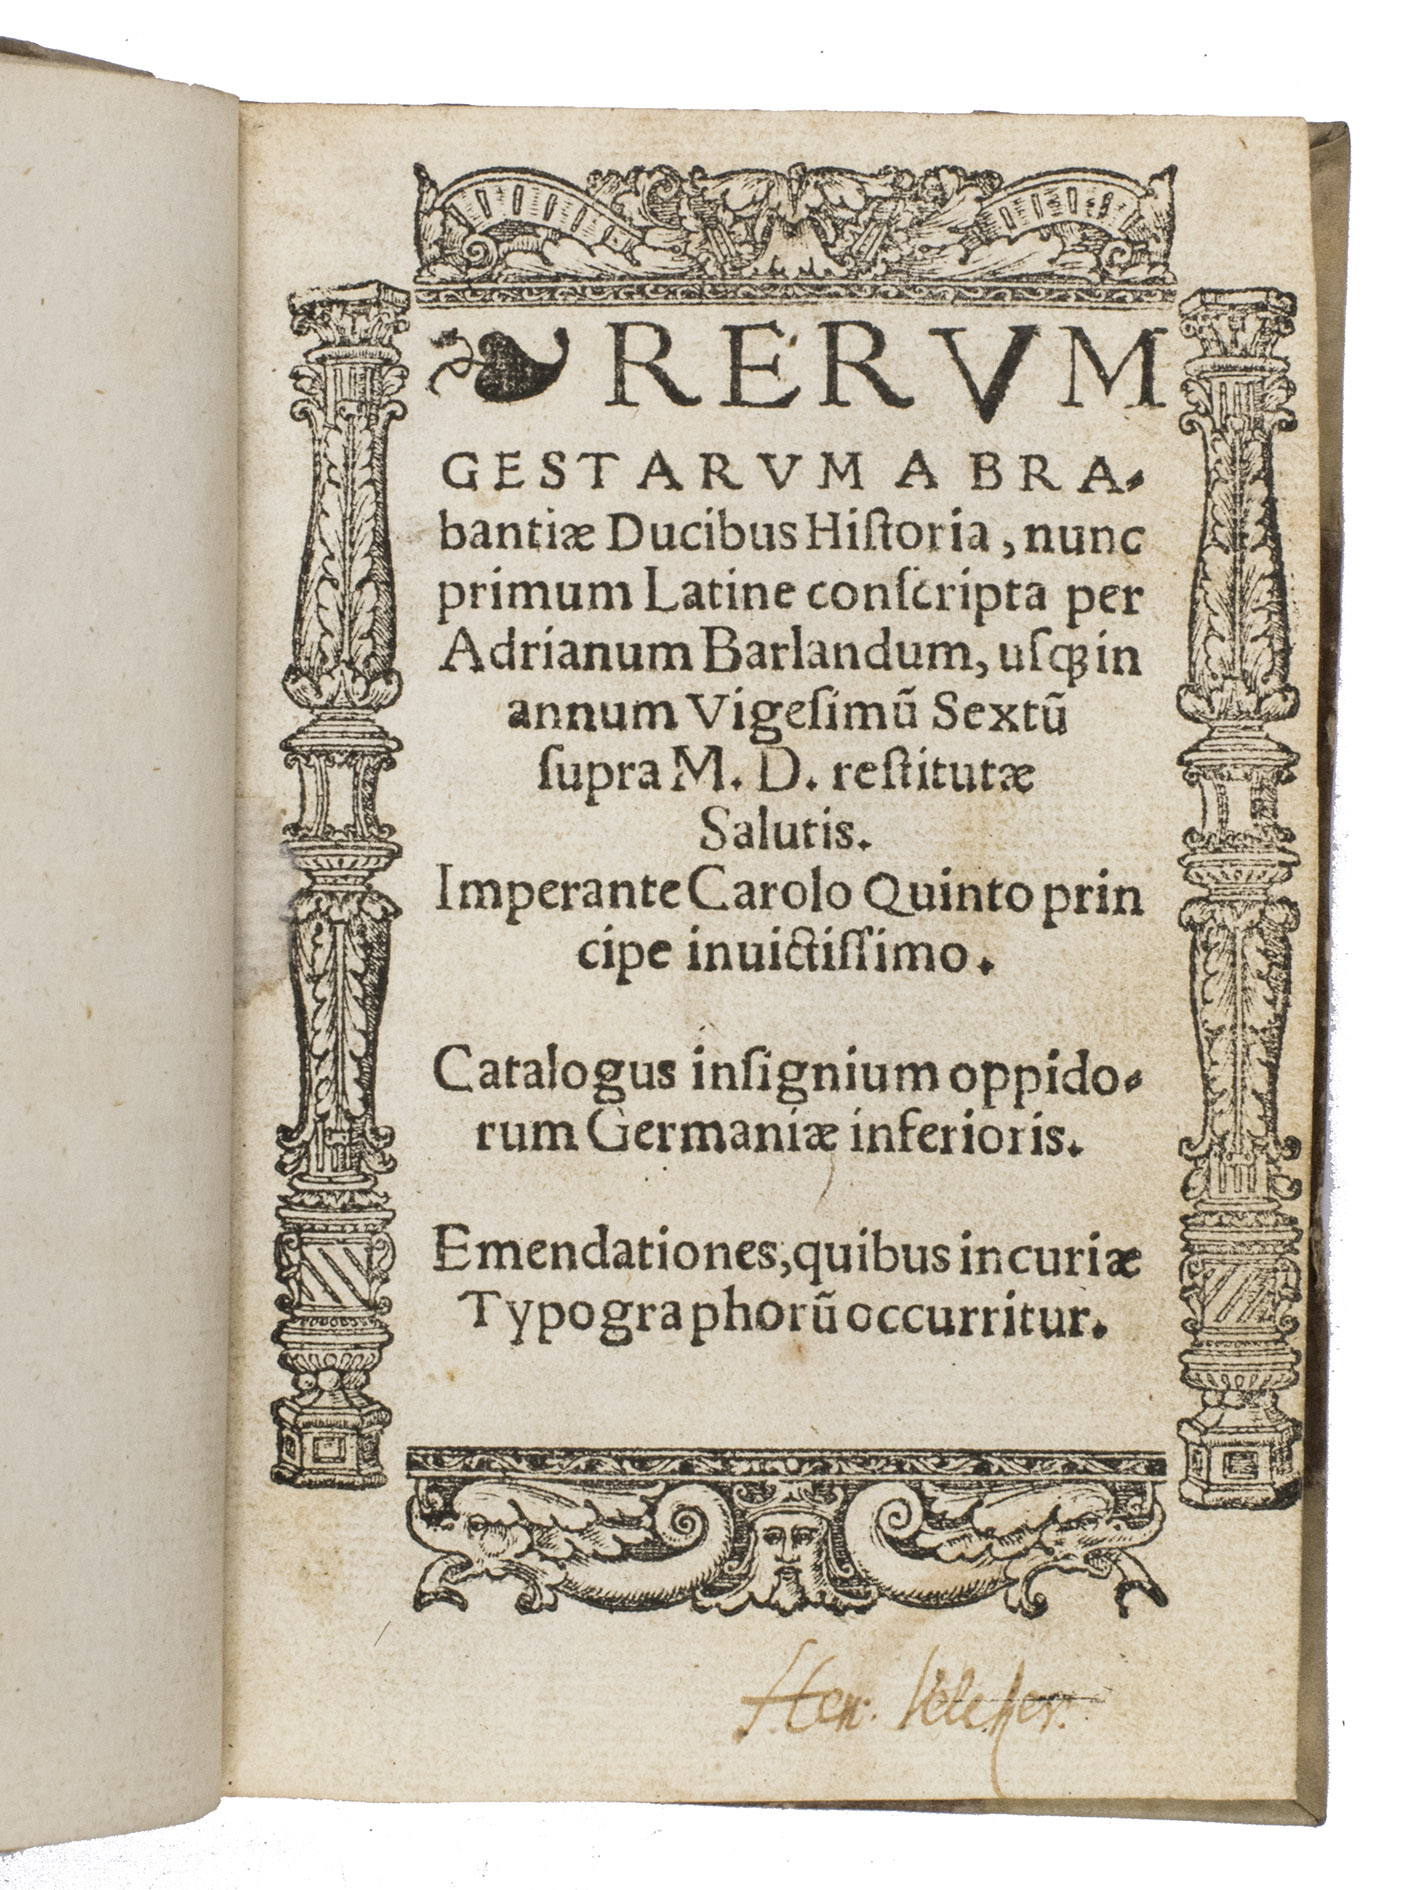 ❧ RERVM
GESTARVM A BRA-
bantiæ Ducibus Hiſtoria, nunc
primum Latine conſcripta per
Adrianum Barlandum, uſqꝫ in
annum Vigeſimũ Sextũ
ſupra M. D. reſtitutæ
Salutis.
Imperante Carolo Quinto prin
cipe inuictiſſimo.
Catalogus inſignium oppido-
rum Germaniæ inferioris.
Emendationes, quibus incuriæ
Typographorũ occurritur.
Hen: